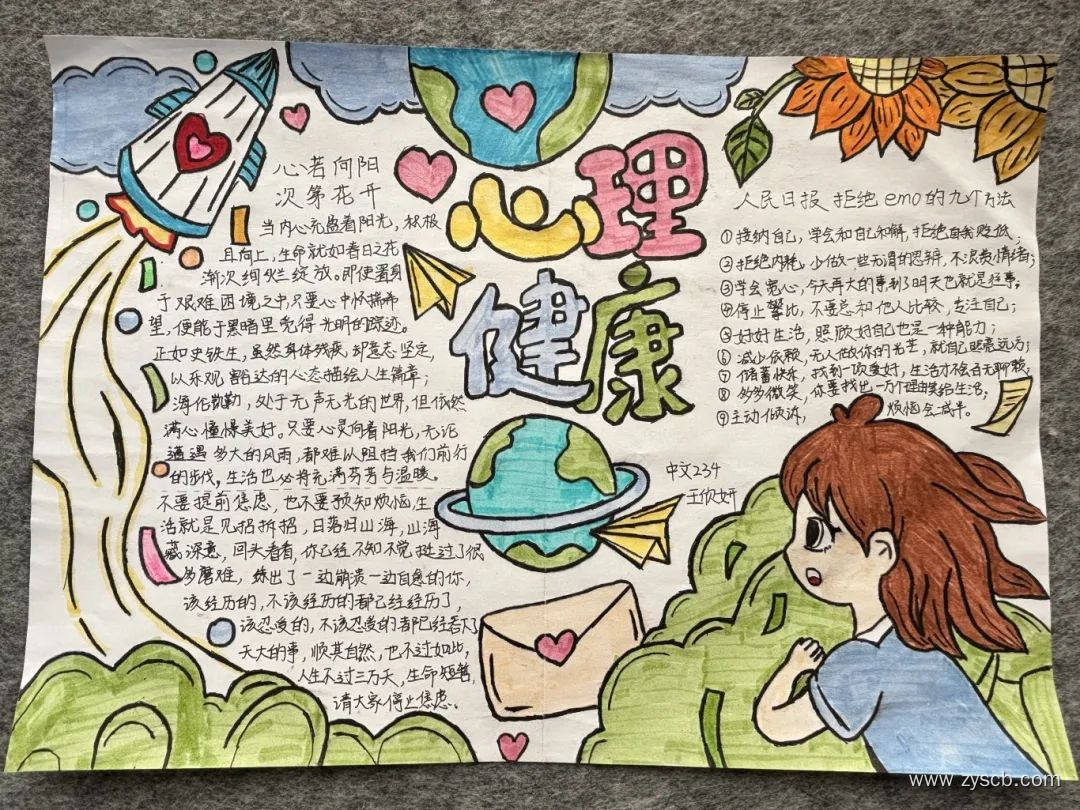 心若向阳
次第花开
当内心充盈着阳光，积极
且向上，生命就如春日之花
渐次绚烂绽放。即使置身
于艰难困境之中，只要心中怀揣希
望，便能于黑暗里觅得光明的踪迹。
正如史铁生，虽然身体残疾，却意志坚定，
以乐观豁达的心态描绘人生篇章；
海伦凯勒，处于无声无光的世界，但依然
满心憧憬美好。只要心灵向着阳光，无论
遭遇多大的风雨，都难以阻挡我们前行
的步伐，生活也必将充满芬芳与温暖。
不要提前焦虑，也不要预知烦恼，生
活就是见招拆招，日落归山海，山海
藏深意，回头看看，你已经不知不觉挺过了很
多磨难，练出了一边崩溃一边自愈的你，
该经历的，不该经历的都已经经历了，
该忍受的，不该忍受的都已经忍了
天大的事，顺其自然，也不过如此，
人生不过三万天，生命短暂，
请大家停止焦虑。
心理
健康
中文234
王
妍
人民日报拒绝emo的九个方法
①接纳自己，学会和自己和解，拒绝自我贬低；
②拒绝内耗，少做一些无谓的思辨，不浪费情绪；
③学会宽心，今天再大的事到了明天也就是往事。
④停止攀比，不要总和他人比较，专注自己；
⑤好好生活，照顾好自己也是一种能力；
⑥减少依赖，无人做你的光芒，就自己照亮远方；
⑦储蓄快乐，找到一项爱好，生活才不会百无聊赖；
⑧多多微笑，你要找出一万个理由笑给生活；
⑨主动倾诉，烦恼会减半。
www.zyscb.com